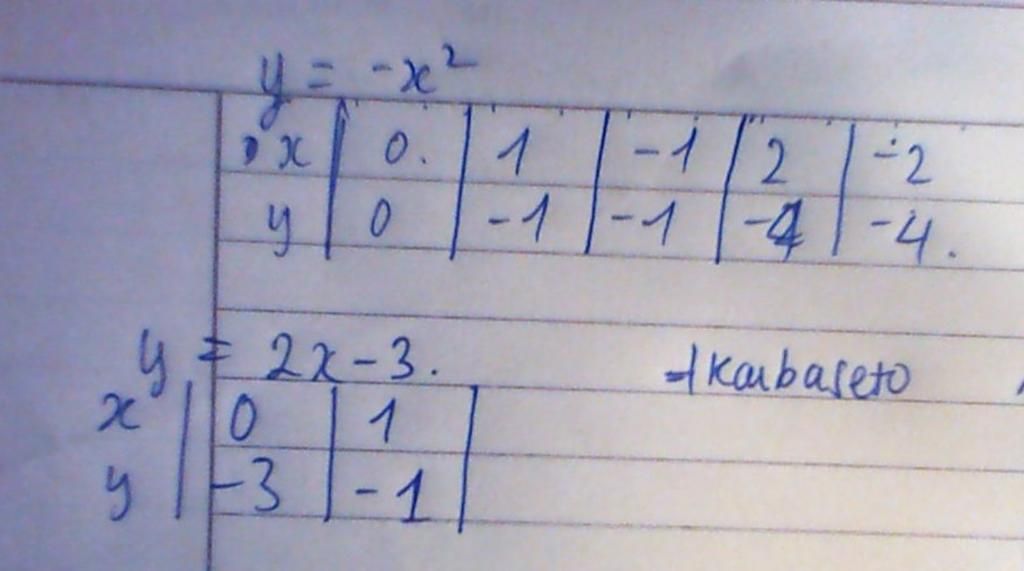 y = -x²
x | 0. | 1 | -1 | 2 | -2
y | 0 | -1 | -1 | -4 | -4.
y = 2x-3.
x | 0 | 1 |
y | -3 | -1 |